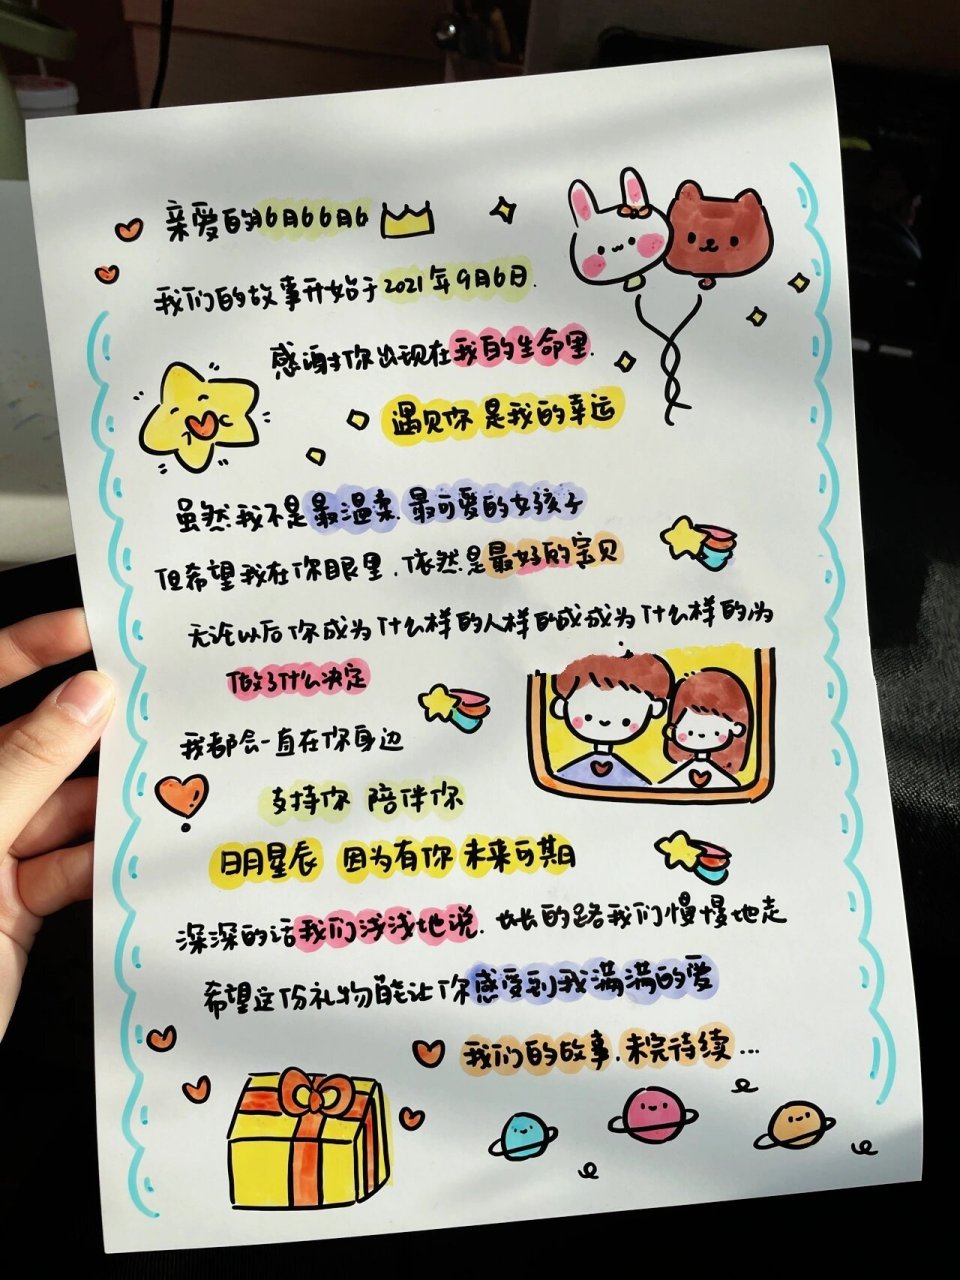 亲爱的6月66月6
我们的故事开始于2021年9月6日.
感谢你出现在我的生命里.
遇见你 是我的幸运
虽然我不是最温柔.最可爱的女孩子
但希望我在你眼里.依然是最好的宝贝
无论以后你成为什么样的人样的成成为什么样的为
做了什么决定
我都会一直在你身边
支持你 陪伴你
日月星辰 因为有你 未来可期
深深的话我们浅浅地说.长长的路我们慢慢地走
希望这份礼物能让你感受到我满满的爱
我们的故事.未完待续...